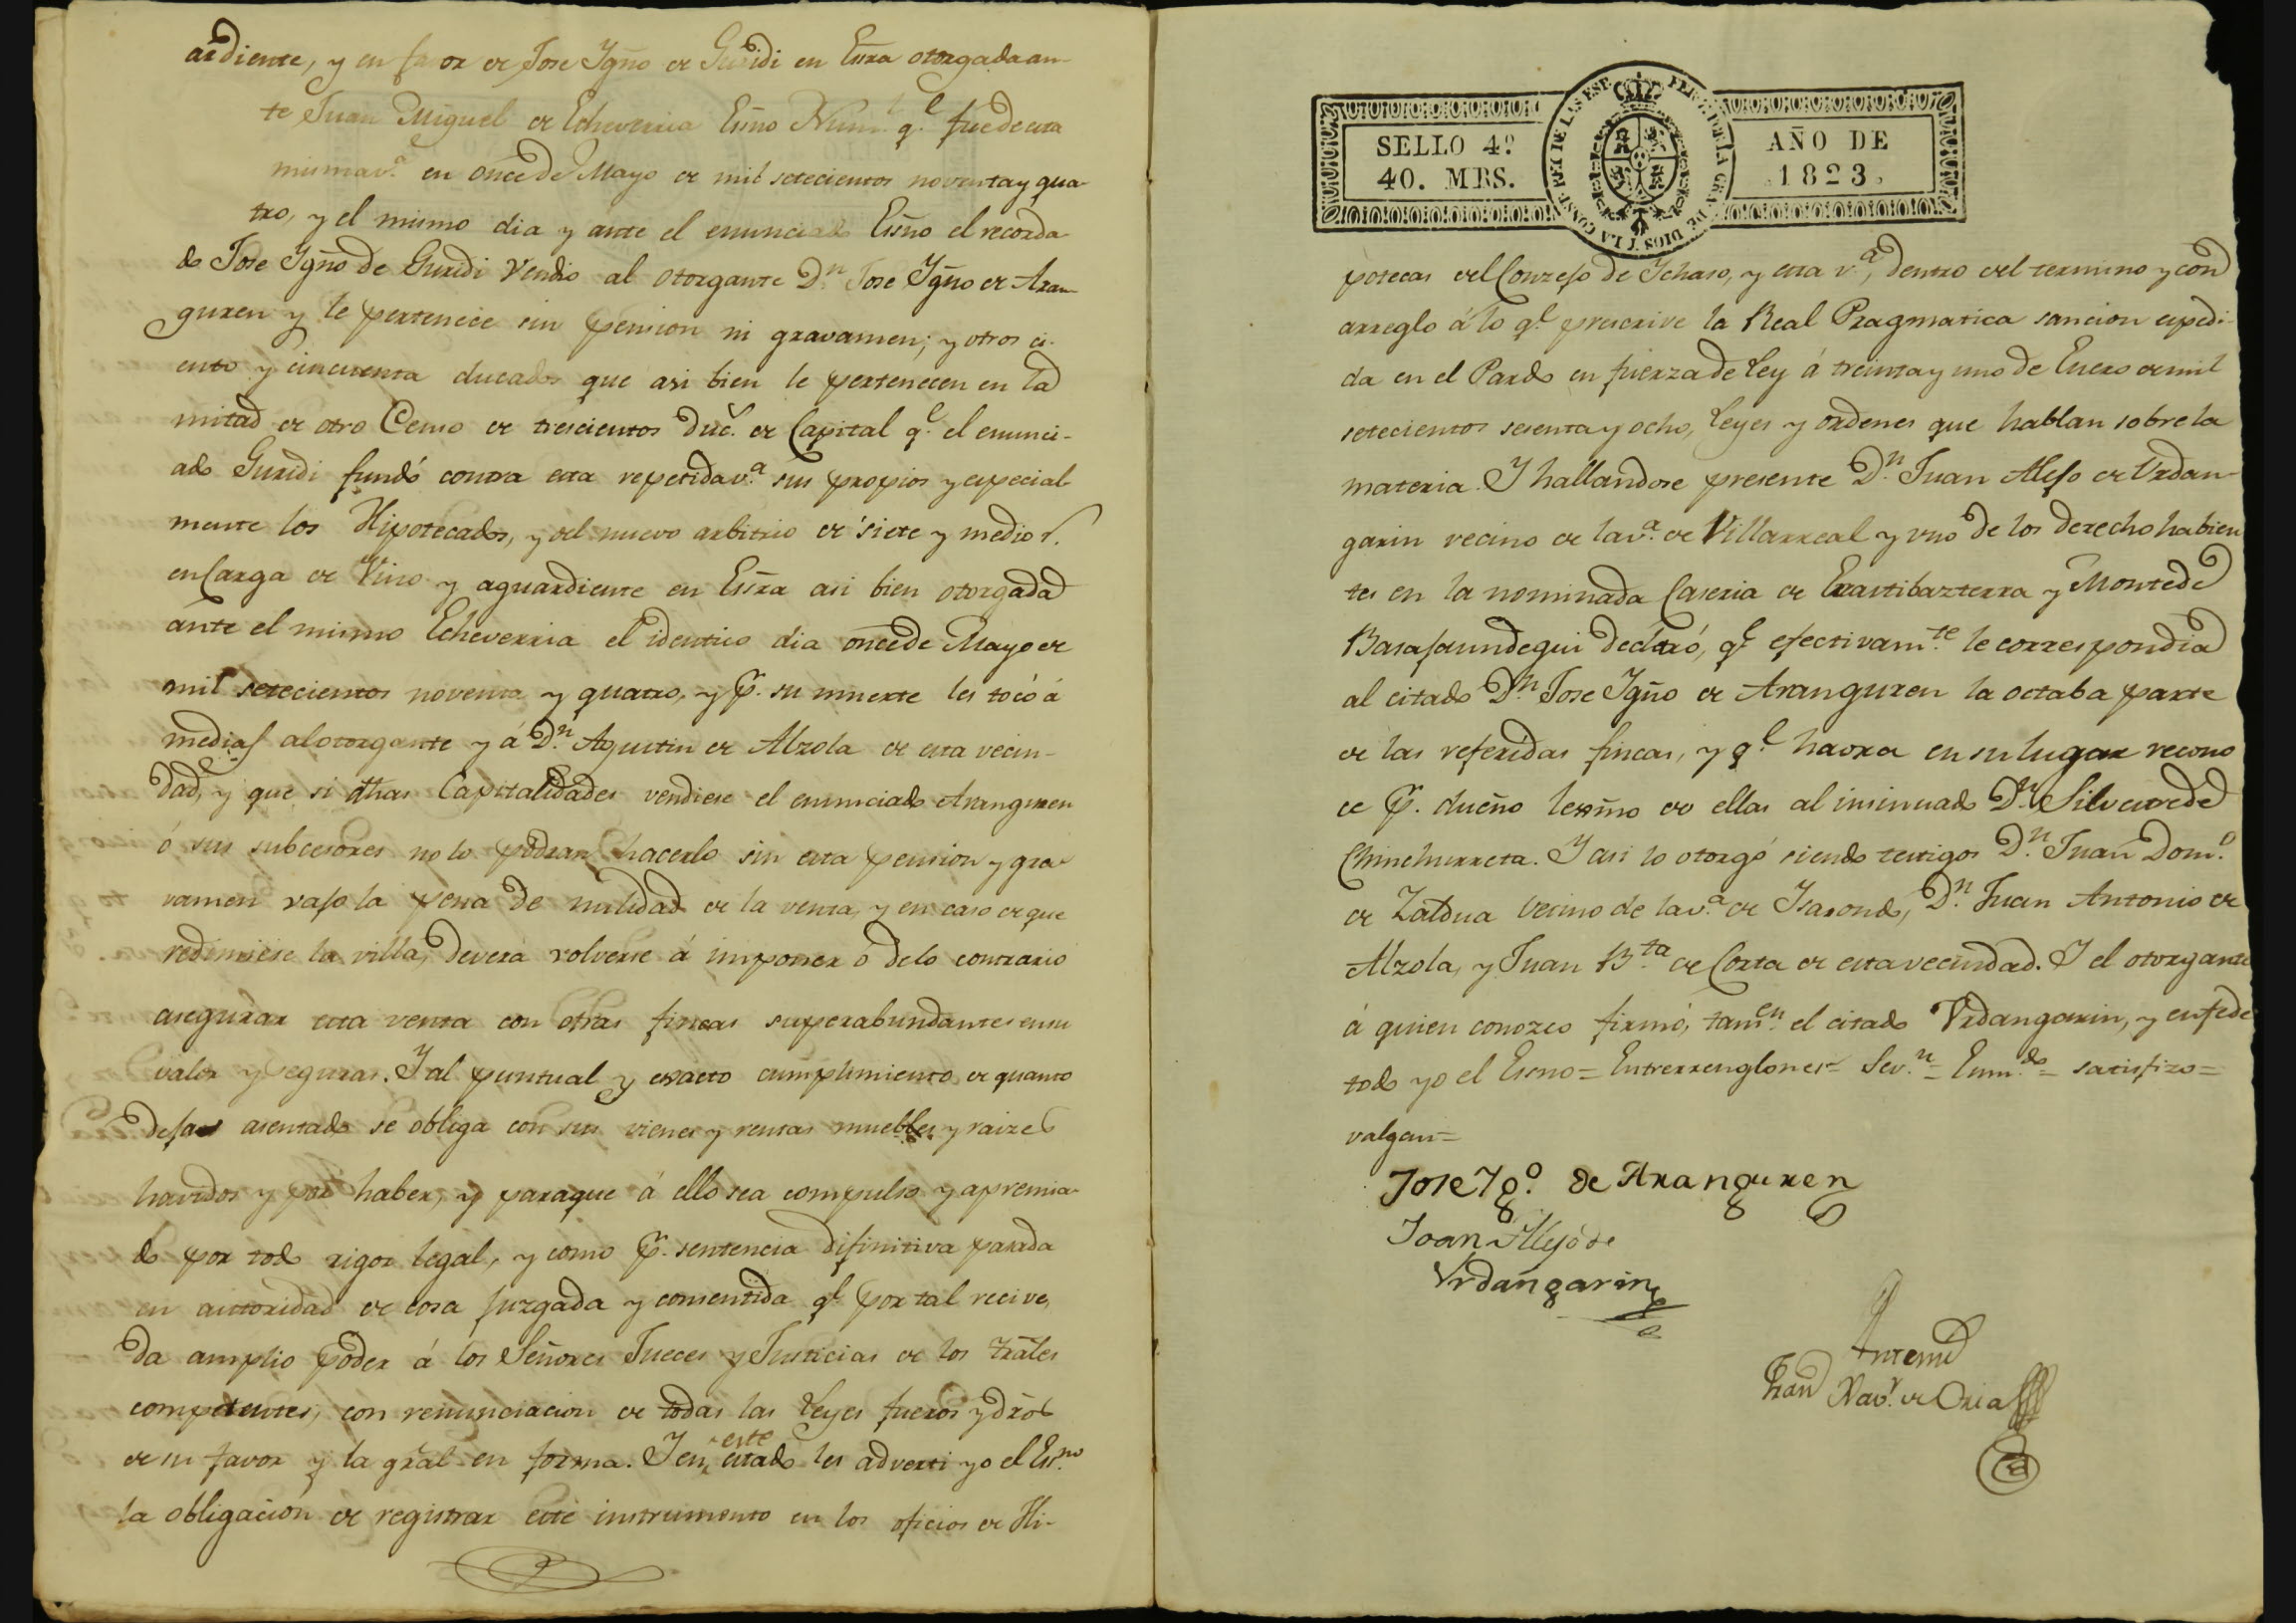 ardiente, y en favor de Jose Ygño de Guridi en Esrra otorgada an-
te Juan Miguel de Echeverria Esño Num.l q.e fue de esta
misma v.a en once de Mayo de mil setecientos noventa y qua-
tro, y el mismo dia y ante el enunciado Esño el recorda
do Jose Ygño de Guridi vendio al otorgante D.n Jose Ygño de Aran-
guren y le pertenece sin pension ni gravamen; y otros ci-
ento y cincuenta ducados que asi bien le pertenecen en la
mitad de otro Censo de trescientos duc.s de Capital q.e el enunci-
ado Guridi fundó contra esta repetida v.a sus propios y especial-
mente los Hipotecados, y del nuevo arbitrio de siete y medio r.s
en Carga de Vino y aguardiente en Esrra asi bien otorgada
ante el mismo Echeverria el identico dia once de Mayo de
mil setecientos noventa y quatro, y P.r su muerte les tocó á
medias al otorgante y á D.n Agustin de Alzola de esta vecin-
dad, y que si dhas Capitalidades vendiese el enunciado Aranguren
ó sus subcesores no lo podran hacerlo sin esta pension y gra-
vamen vajo la pena de nulidad de la venta, y en caso de que
redimiese la villa, devera volverse á imponer ó de lo contrario
asegurar esta venta con otras fincas superabundantes en su
valor y seguras. Y al puntual y exacto cumplimiento de quanto
deja asentado se obliga con sus vienes y rentas muebles y raizes
havidos y por haber, y para que á ello sea compulso y apremia-
do por todo rigor legal, y como P.r sentencia difinitiva pasada
en autoridad de cosa juzgada y consentida q.e por tal recive,
da amplio poder á los Señores Jueces y Justicias de los trâles
competentes, con renunciacion de todas las Leyes fueros y dros
de su favor y la gral en forma. Y en estado les adverti yo el Es.no
este
la obligacion de registrar este instrumento en los oficios de Hi-
SELLO 4º
40. MRS.
AÑO DE
1823.
potecas del Conzejo de Ichaso, y esta v.a, dentro del termino y con
arreglo á lo q.e prescrive la Real Pragmatica sancion espedi-
da en el Pardo en fuerza de Ley á treinta y uno de Enero de mil
setecientos sesenta y ocho, Leyes y ordenes que hablan sobre la
materia. Y hallandose presente D.n Juan Alejo de Vrdan-
garin vecino de la v.a de Villarreal y uno de los derecho habien
tes en la nominada Caseria de Erastibazterra y Monte de
Basajaundegui declaró, q.e efectivam.te le correspondia
al citado D.n Jose Ygño de Aranguren la octaba parte
de las referidas fincas, y q.e haora en su lugar recono
ce P.r dueño lexmo de ellas al insinuado D.n Silvestre de
Chinchurreta. Y asi lo otorgó siendo testigos D.n Juan Dom.o
de Zaldua vecino de la v.a de Isasondo, D.n Juan Antonio de
Alzola, y Juan B.ta de Corta de esta vecindad. Y el otorgante
á quien conozco firmó, tam.en el citado Vrdangarin, y en fe de
todo yo el Esno = Entrerrenglones = Sev.n = Enm.do = satisfizo =
valgan =
Jose Ygº. de Aranguren
Joan Alejo de
Vrdangarin
Antemi
Fran Xav.r de Oria